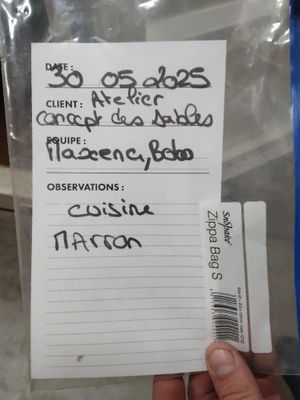 DATE : 30 05 2025
CLIENT : Atelier
concept des sables
EQUIPE :
Maxence, Bobo
OBSERVATIONS :
cuisine
Marron
SnShake
Zippa Bag S